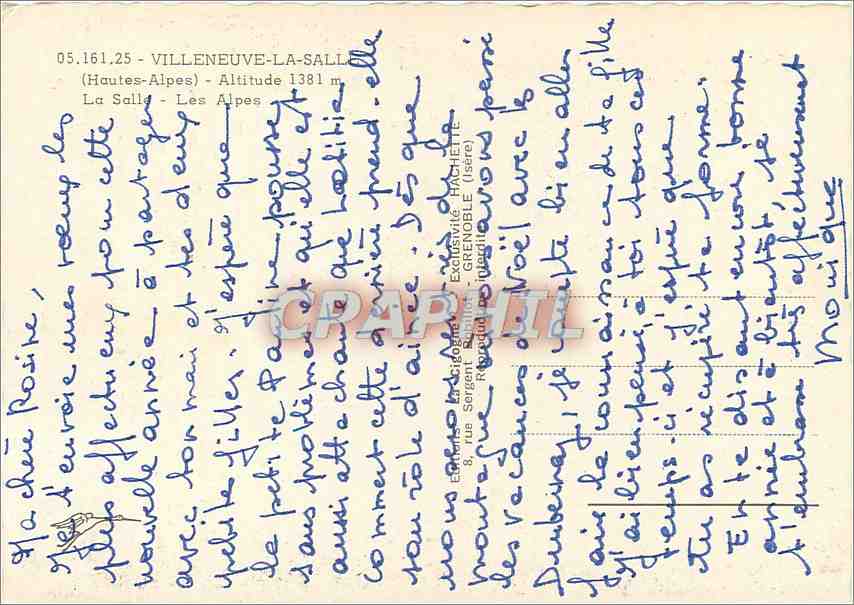 05.161.25 - VILLENEUVE-LA-SALLE
(Hautes-Alpes) - Altitude 1381 m
La Salle - Les Alpes
Editions "La Cigogne" - Exclusivité HACHETTE
8, rue Sergent Bobillot - GRENOBLE (Isère)
Reproduction interdite
CPAPHIL
Ma chère Rosine,
Je t'envoie mes vœux les
plus affectueux pour cette
nouvelle année à partager
avec ton mari et tes deux
petites filles. J'espère que
la petite pousse
sans problèmes et qu'elle est
aussi attachante que Laetitia
comment cette dernière prend-elle
son rôle d'aînée. Dès que
nous serons
montagne où nous avons passé
les vacances de Noël avec les
je compte bien aller
faire la connaissance de ta fille
J'ai bien pensé à toi tous ces
temps-ci et j'espère que
tu as récupéré ta forme.
En te disant encore bonne
année et à bientôt, je
t'embrasse très affectueusement
Monique